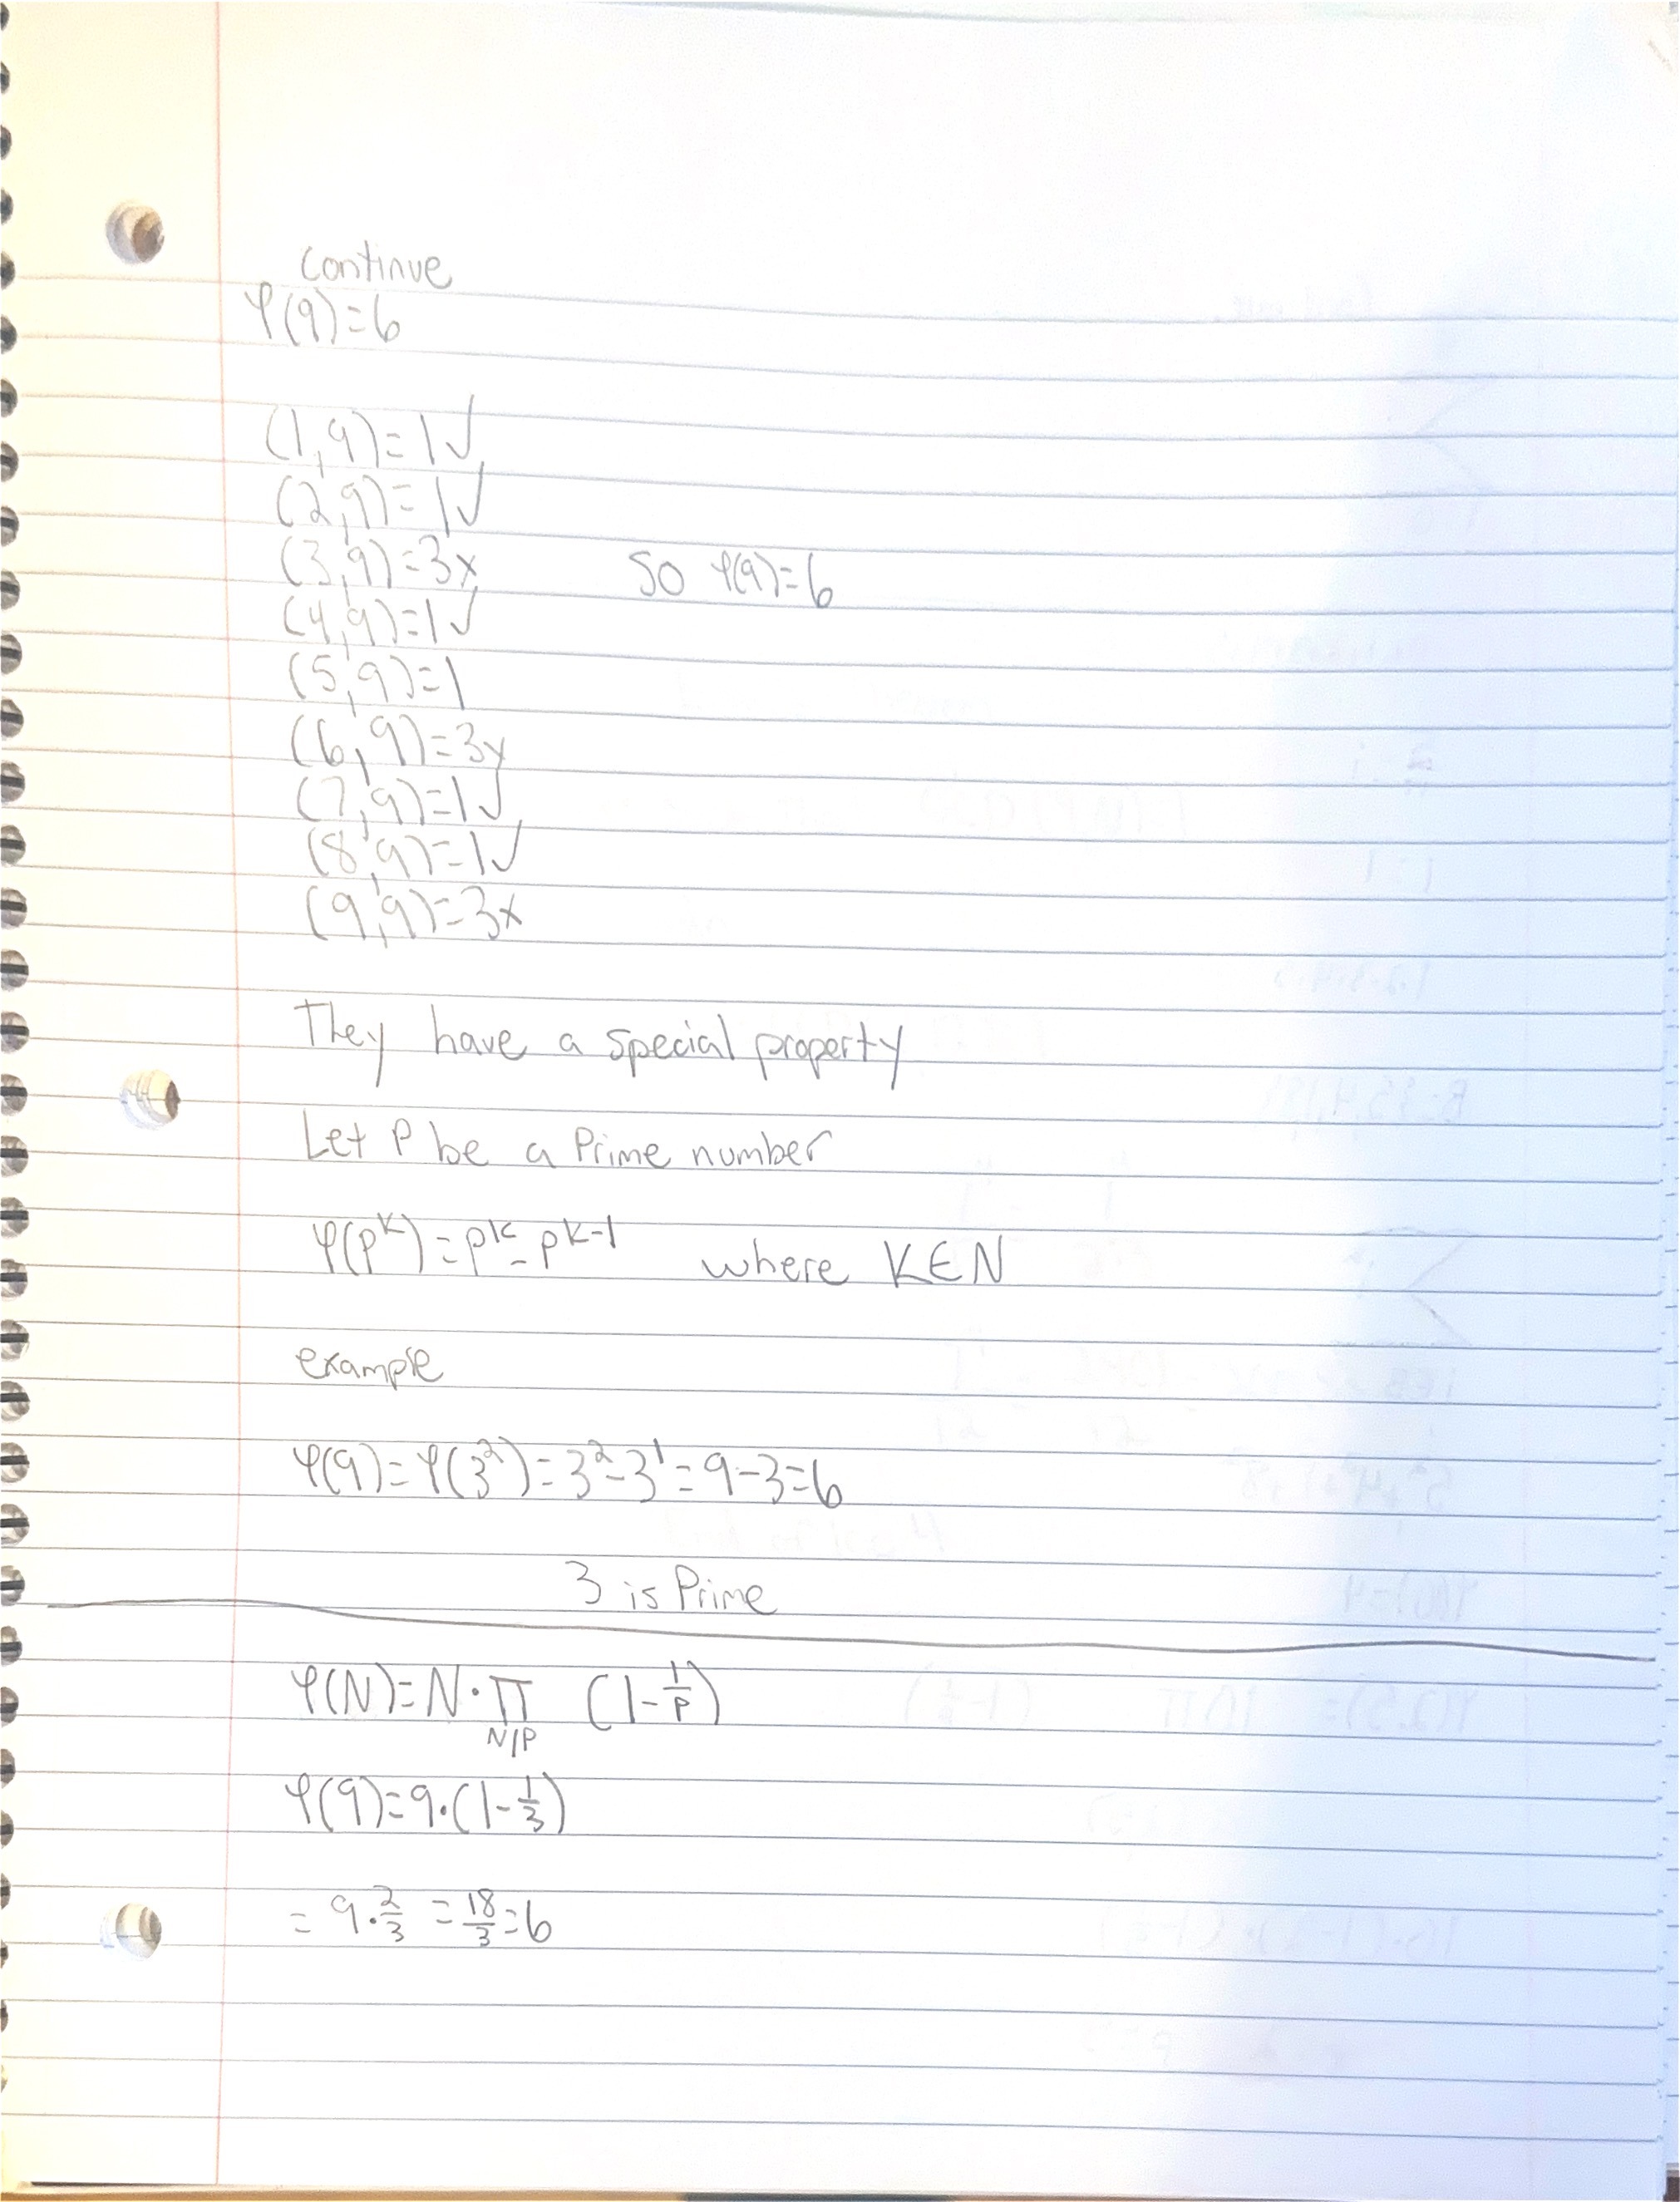 continue
φ(9)=6
(1,9)=1✓
(2,9)=1✓
(3,9)=3x so φ(9)=6
(4,9)=1✓
(5,9)=1
(6,9)=3x
(7,9)=1✓
(8,9)=1✓
(9,9)=3x
They have a special property
Let P be a Prime number
φ(p^k)=p^k-p^k-1 where K∈N
example
φ(9)=φ(3²)=3²-3¹=9-3=6
3 is Prime
φ(N)=N·∏ (1-1/P)
N/P
φ(9)=9·(1-1/3)
=9·2/3=18/3=6